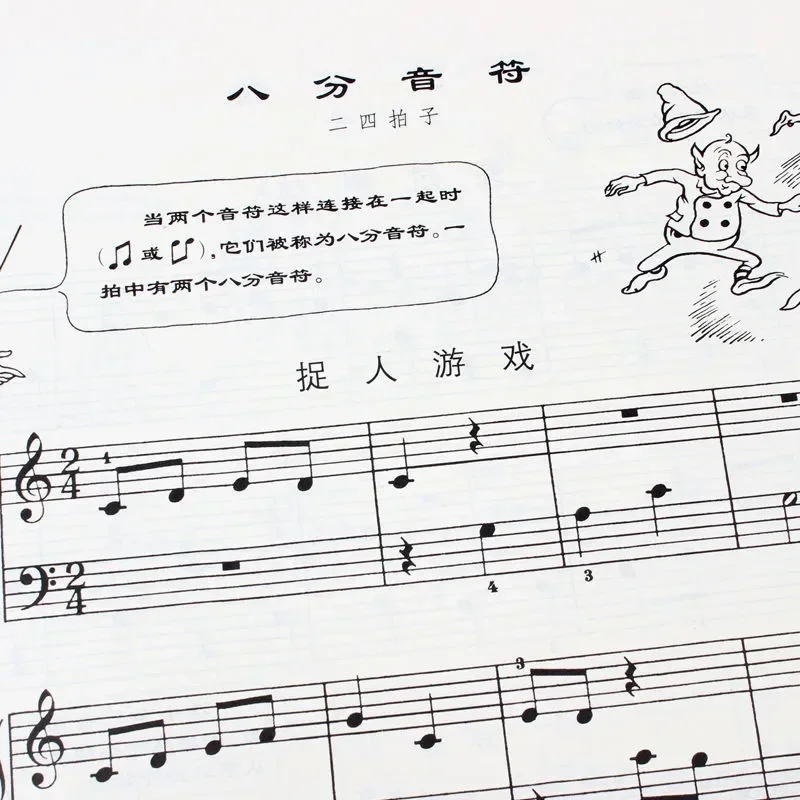 八分音符
二四拍子
当两个音符这样连接在一起时
(♫或♫),它们被称为八分音符。一
拍中有两个八分音符。
捉人游戏
2
4
1
2
4
4
3
3